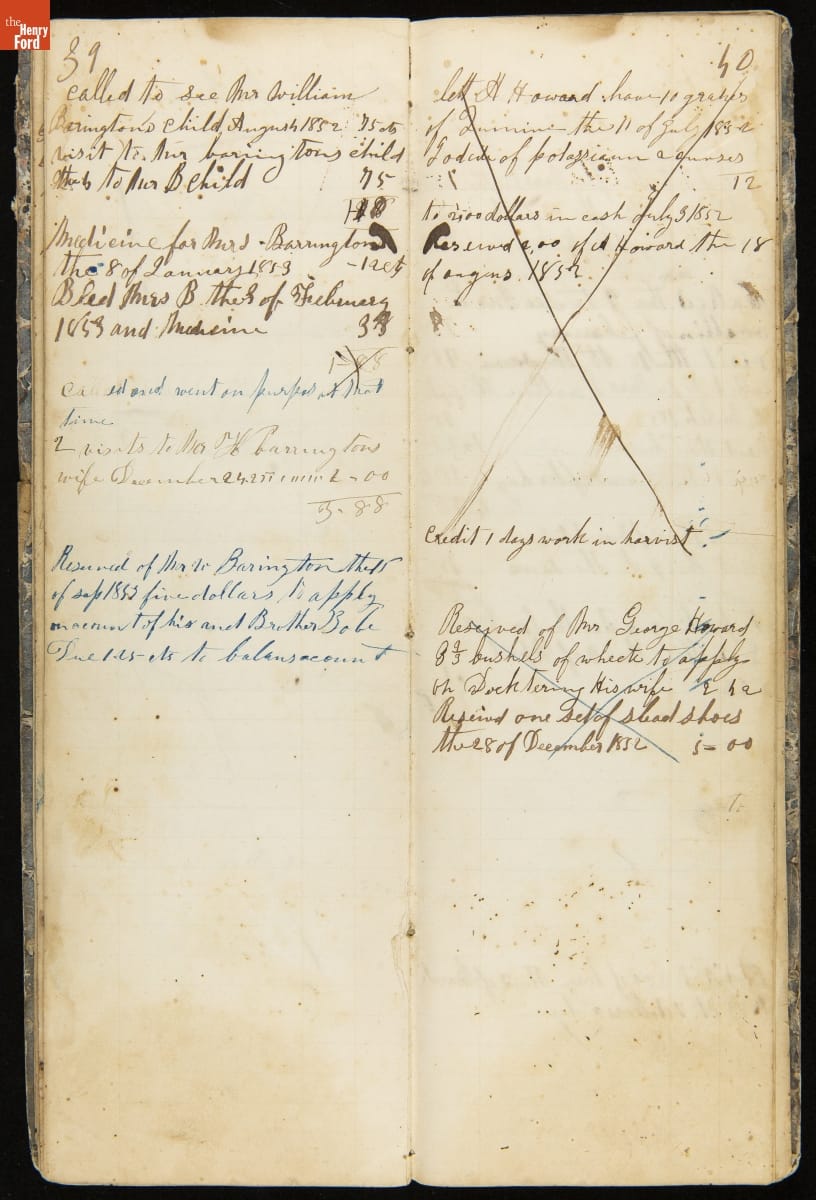 the
Henry
Ford
39
called to see Mr William
Baringtons child, August 1852 75 cts
visit to Mr baringtons child
to Mr B child 75
Medicine for Mrs - Barrington
the 8 of January 1853 - 12 cts
Bled Mrs B the 3 of February
1853 and Medicine 38
1-88
called and went on purpos at that
time
2 visits to Mr H barringtons
wife December 24.25 2-00
3-88
Received of Mr W Barington the 15
of sep 1853 five dollars to apply
on acount of his and Brother Bobe
Due 1.25 cts to balans acount
40
lett A Howard have 10 granes
of the 11 of July 1852
Iodide of potassium 2 ounses
12
to 2.00 dollars in cash July 3 1852
Received 2,00 of A Howard the 18
of 1852
credit 1 days work in harvist
Received of Mr George Howard
3 2/3 bushels of wheete to apply
on Docktering His wife
Received one set of slead shoes
the 28 of December 1852 5=00